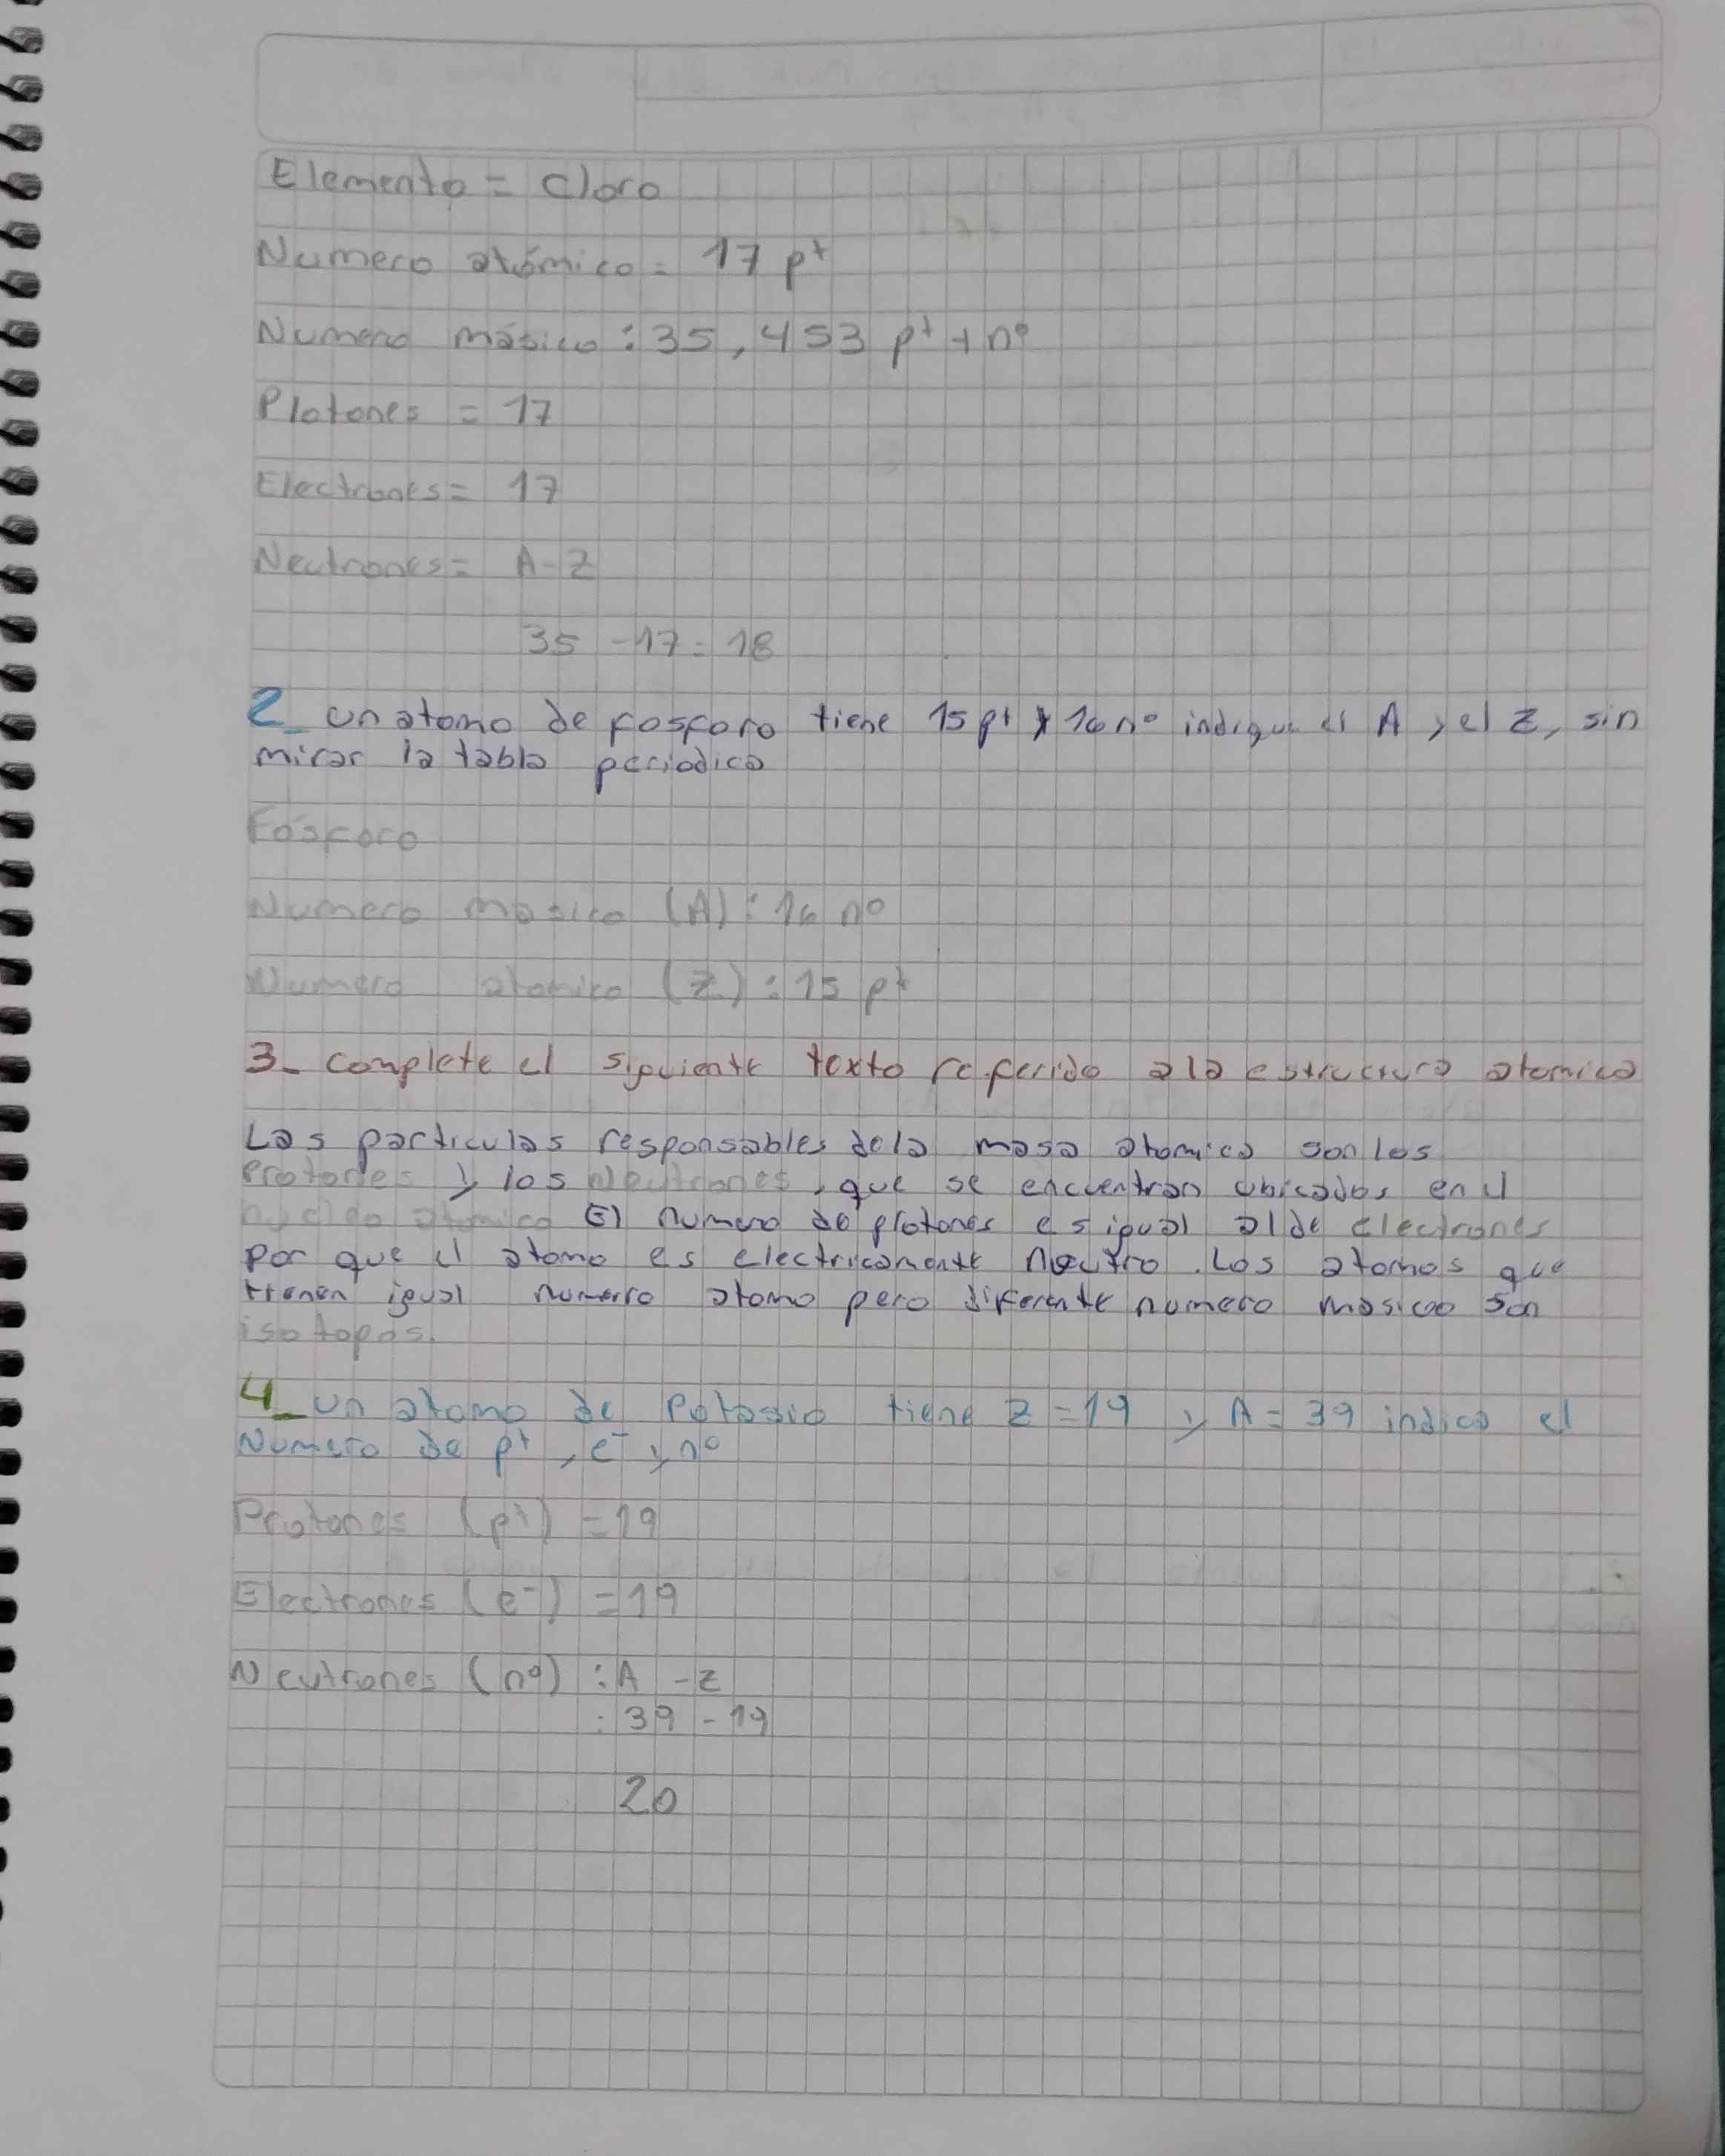 Elemento = cloro
Numero atómico = 17 p+
Numero másico : 35,453 p+ + n°
Plotones = 17
Electrones = 17
Neutrones = A-Z
35 -17 = 18
2_ un atomo de fosforo tiene 15 p+ y 16 n° indique el A y el Z, sin
mirar la tabla periodica
Fósforo
Numero masico (A) : 16 n°
Numero atomico (Z) : 15 p+
3_ complete el siguiente texto referido ala estructura atomica
Las particulas responsables dela masa atomica son los
Protones y los Neutrones, que se encuentran ubicados en el
nucleo atomico El numero de protones es igual al de electrones
por que el atomo es electricamente neutro. Los atomos que
tienen igual numero atomo pero diferente numero masico son
isotopos.
4_ un atomo de Potasio tiene Z = 19 y A = 39 indica el
Numero de p+, e- y n°
Protones (p+) = 19
Electrones (e-) = 19
Neutrones (n°) : A - Z
: 39 - 19
20